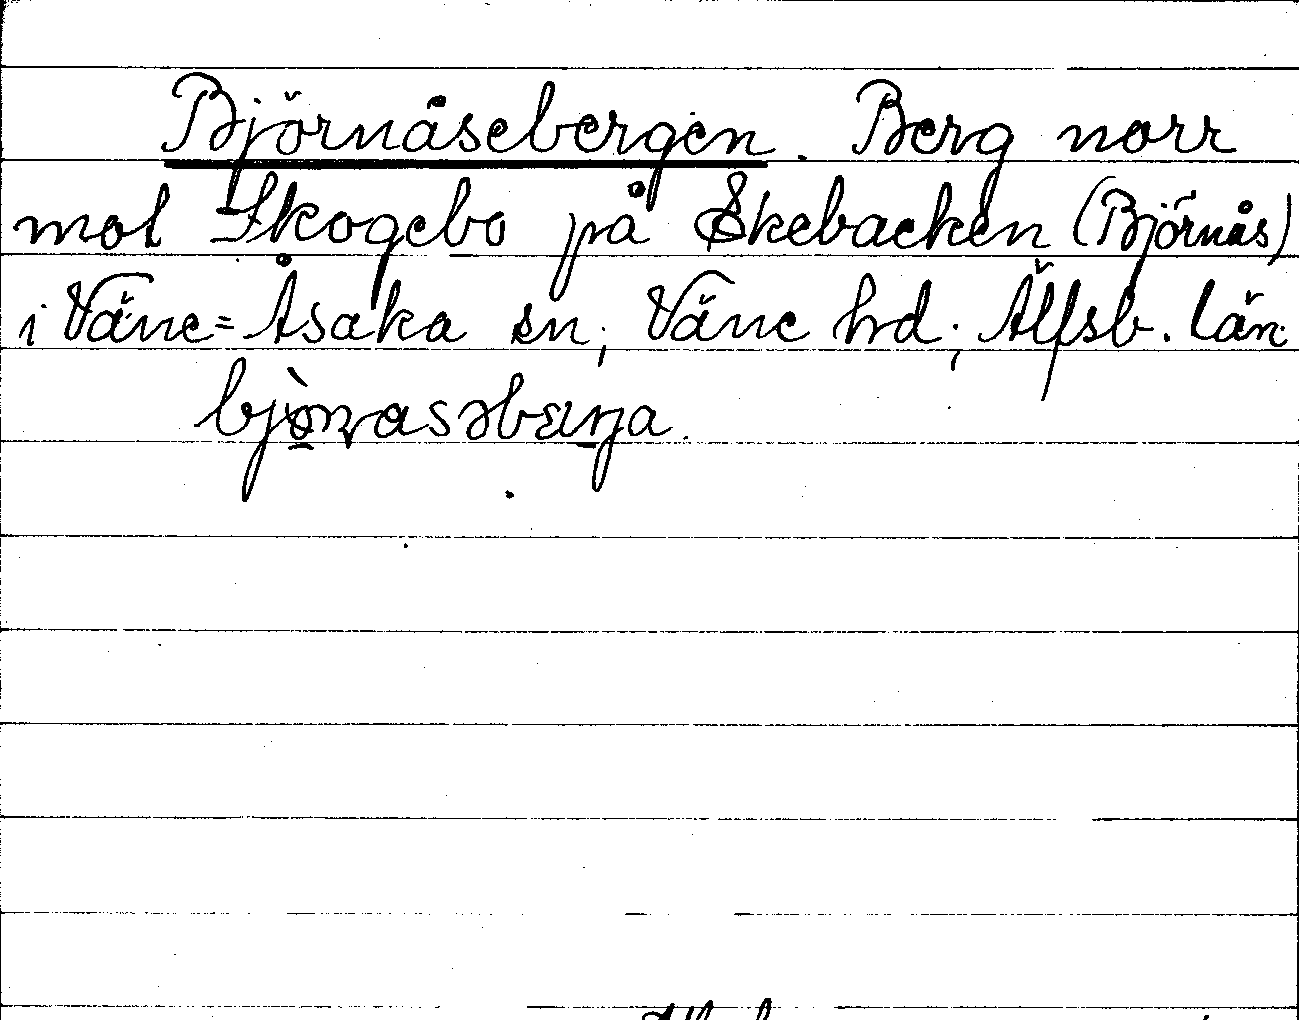 Björnåsebergen. Berg norr
mot Skogebo på Skebacken (Björnås)
i Väne=Åsaka sn, Väne hd, Älfsb. län.